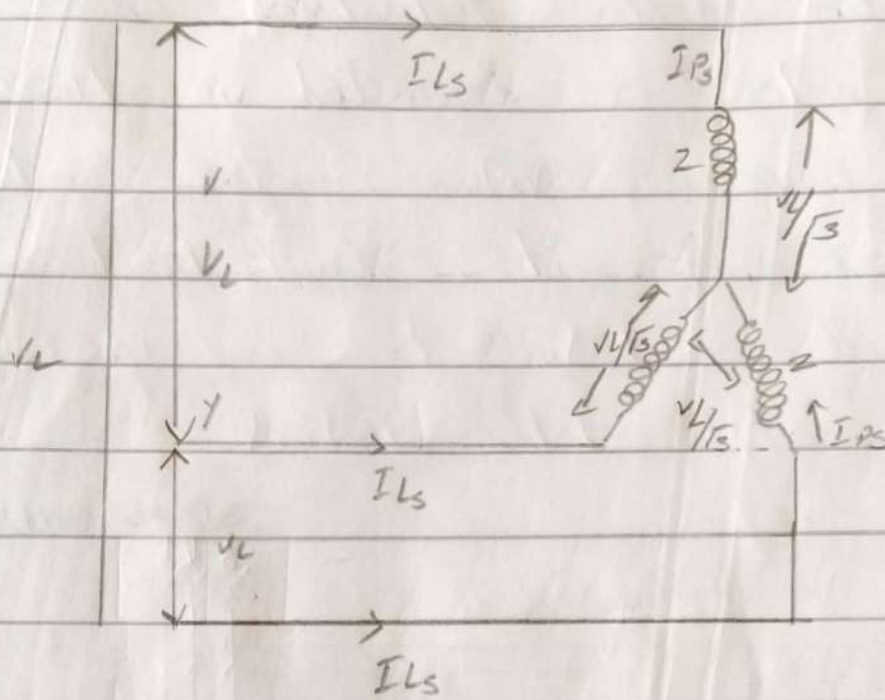 I Ls
I Ps
Z
V
VL/√3
VL
VL/√3
Z
VL
Y
VL/√3
I Ps
I Ls
VL
I Ls